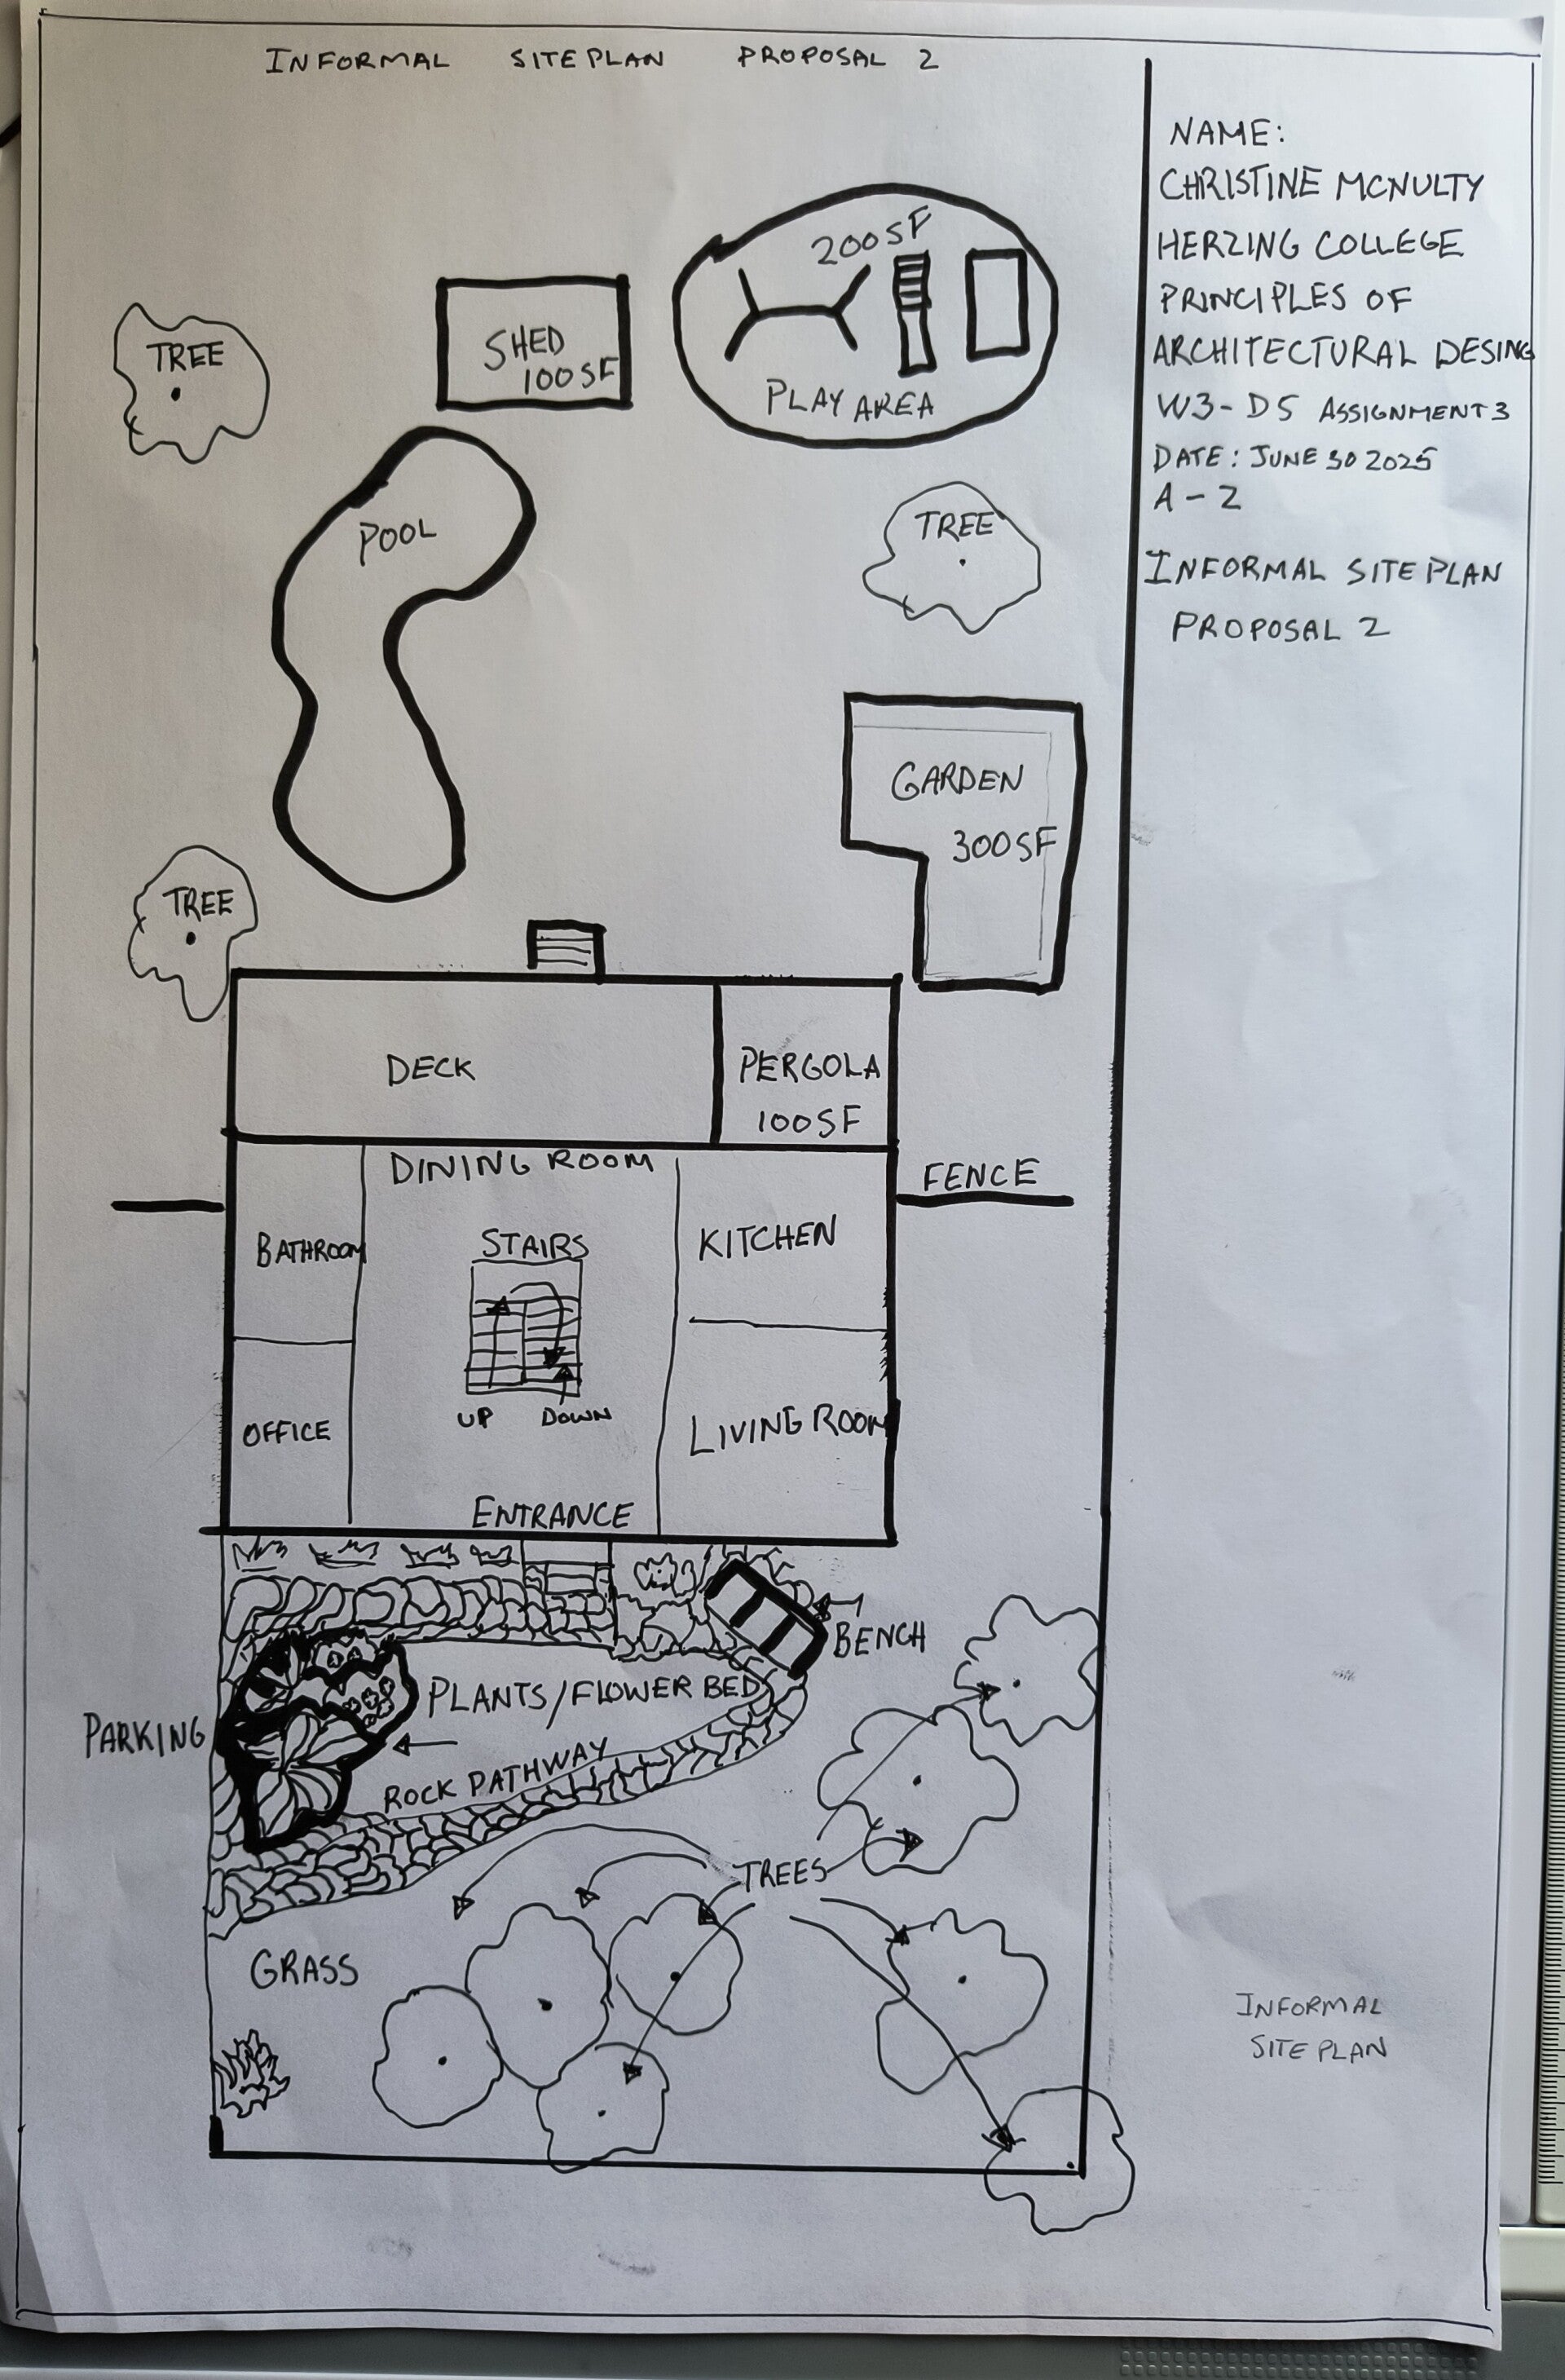 INFORMAL SITE PLAN PROPOSAL 2
NAME:
CHRISTINE MCNULTY
HERZING COLLEGE
PRINCIPLES OF
ARCHITECTURAL DESING
W3-D5 ASSIGNMENT 3
DATE: JUNE 30 2025
A-2
INFORMAL SITE PLAN
PROPOSAL 2
200SF
PLAY AREA
SHED
100SF
TREE
POOL
TREE
GARDEN
300SF
TREE
DECK
PERGOLA
100SF
DINING ROOM
FENCE
BATHROOM
STAIRS
KITCHEN
UP DOWN
OFFICE
LIVING ROOM
ENTRANCE
BENCH
PLANTS/FLOWER BED
PARKING
ROCK PATHWAY
TREES
GRASS
INFORMAL
SITE PLAN